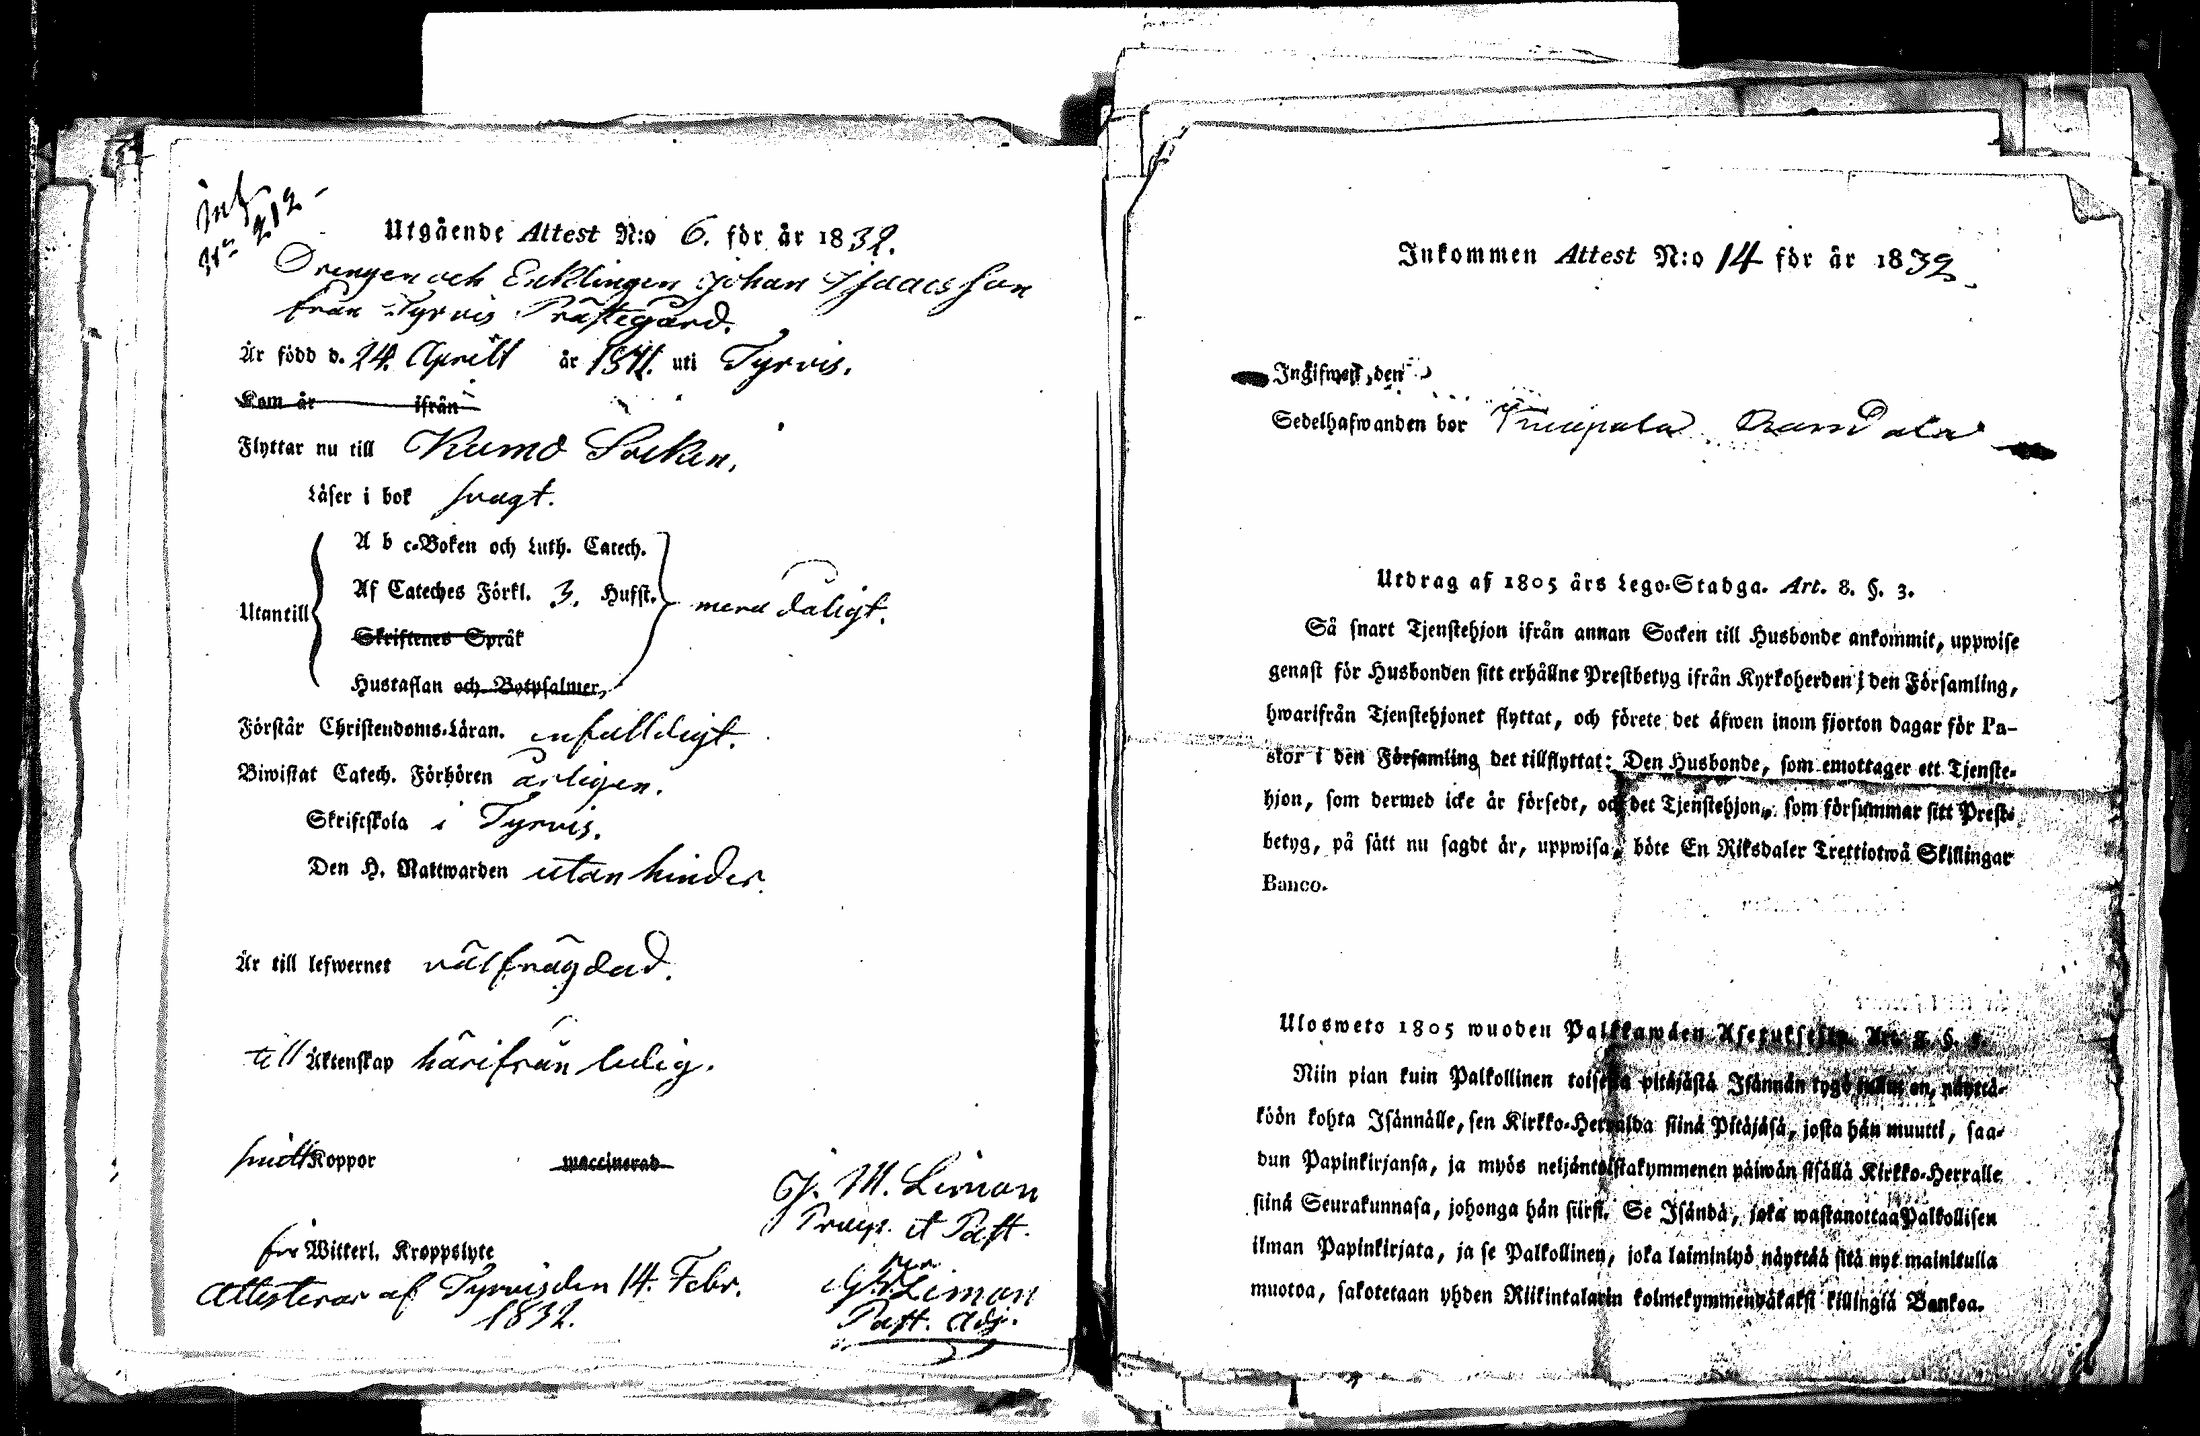 Inf
N:o 212
Utgående Attest N:o 6. för år 1832.
Drengen och Enklingen Johan Isaacs Son
från Tyrvis Prästegård.
Är född d. 24. April år uti Tyrvis.
Kom år ifrån
Flyttar nu till Kumo Socken.
Läser i bok svagt.
A b c-Boken och Luth. Catech.
Af Cateches Förkl. 3. Hufst.
Utantill mera dåligt.
Skriftenes Språk
Hustaflan och Botpsalmer,
Förstår Christendoms-Läran. enfaldigt.
Biwistat Catech. Förhören årligen.
Skriftskola i Tyrvis.
Den H. Nattwarden utan hinder.
Är till lefwernet välfrägdad.
till Äktenskap härifrån ledig.
Koppor waccinerad
J. M. Liman
Præp. et Past.
för Witterl. Kroppslyte
Attesterar af Tyrvis den 14. Febr.
1832.
per
Liman
Past. Adj.
Inkommen Attest N:o 14 för år 1832.
Ingifwen, den
Sedelhafwanden bor
Utdrag af 1805 års Lego-Stadga. Art. 8. §. 3.
Så snart Tjenstehjon ifrån annan Socken till Husbonde ankommit, uppwise
genast för Husbonden sitt erhållne Prestbetyg ifrån Kyrkoherden i den Församling,
hwarifrån Tjenstehjonet flyttat, och förete det äfwen inom fjorton dagar för Pa-
stor i den Församling det tillflyttat: Den Husbonde, som emottager ett Tjenste-
hjon, som dermed icke är försedt, och det Tjenstehjon, som försummar sitt Prest-
betyg, på sätt nu sagdt är, uppwisa, böte En Riksdaler Trettiotwå Skillingar
Banco.
Ulosweto 1805 wuoden Palkkawäen Asetuksesta. Art. 8. §. 3.
Niin pian kuin Palkollinen toisesta pitäjästä Isännän tygö tullut on, näyttä-
köön kohta Isännälle, sen Kirkko-Herralda siinä Pitäjäsä, josta hän muutti, saa-
dun Papinkirjansa, ja myös neljäntoistakymmenen päiwän sisällä Kirkko-Herralle
siinä Seurakunnasa, johonga hän siirsi. Se Isändä, joka wastanottaa Palkollisen
ilman Papinkirjata, ja se Palkollinen, joka laiminlyö näyttää sitä nyt mainitulla
muotoa, sakotetaan yhden Riikintalarin kolmekymmendäkaksi killingiä Bankoa.